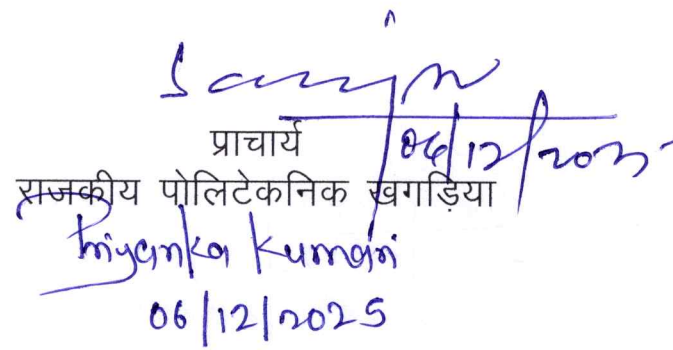 प्राचार्य
06/12/2025
राजकीय पोलिटेकनिक खगड़िया
Priyanka Kumari
06/12/2025